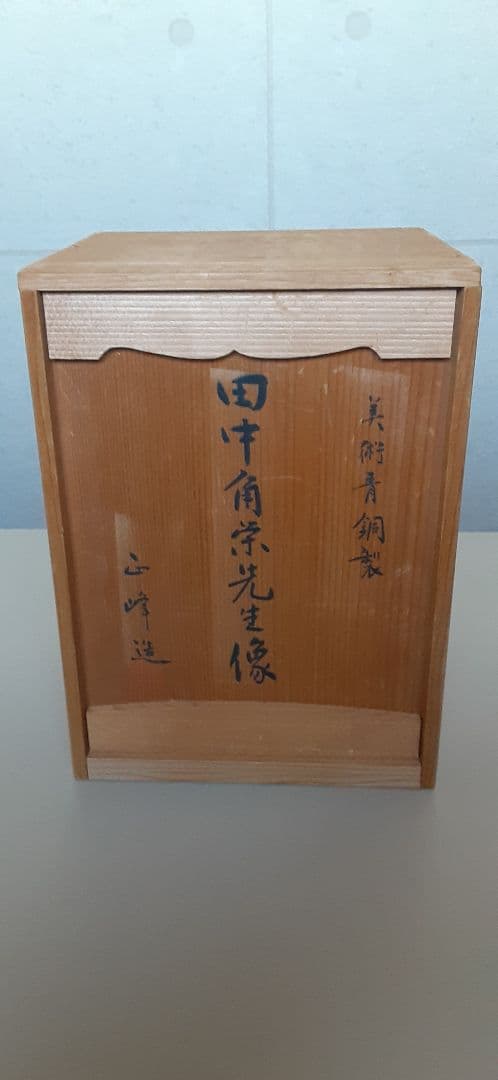 美術青銅製
田中角栄先生像
正峰造